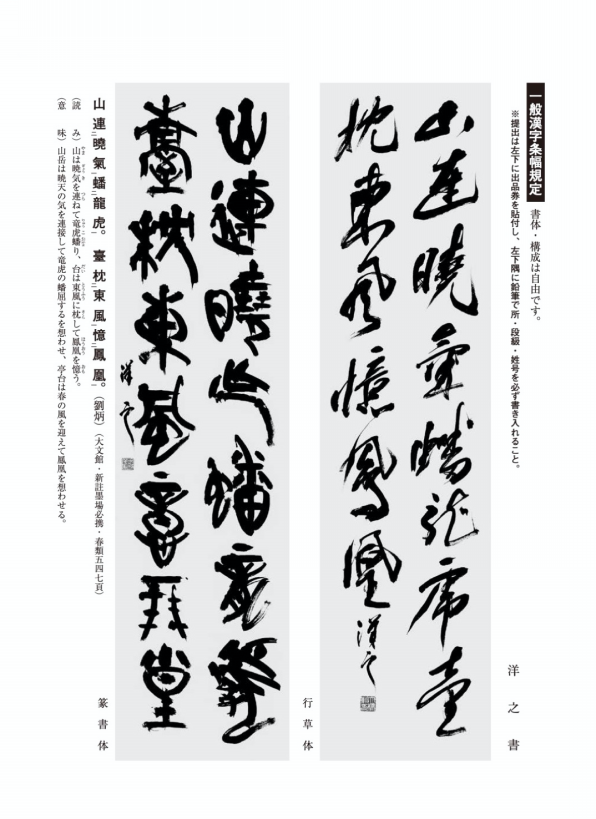 一般漢字条幅規定 書体・構成は自由です。
※提出は左下に出品券を貼付し、左下隅に鉛筆で所・段級・姓号を必ず書き入れること。
洋之書
山連曉氣蟠龍虎臺
枕東風憶鳳凰 洋之
行草体
山連曉气蟠龍虎
臺枕東風意鳳凰
洋之
篆書体
山連曉氣蟠龍虎。 臺枕東風憶鳳凰。(劉炳)(大文館・新註墨場必携・春類五四七頁)
(読み)山は曉気を連ねて竜虎蟠り、台は東風に枕して鳳凰を憶う。
(意味)山岳は曉天の気を連接して竜虎の蟠屈するを想わせ、亭台は春の風を迎えて鳳凰を想わせる。